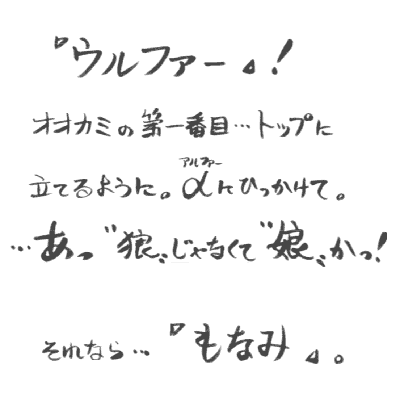 『ウルファー』！
オオカミの第一番目…トップに
アルファー
立てるように。αにひっかけて。
…あっ“狼”じゃなくて“娘”かっ！
それなら…『もなみ』。